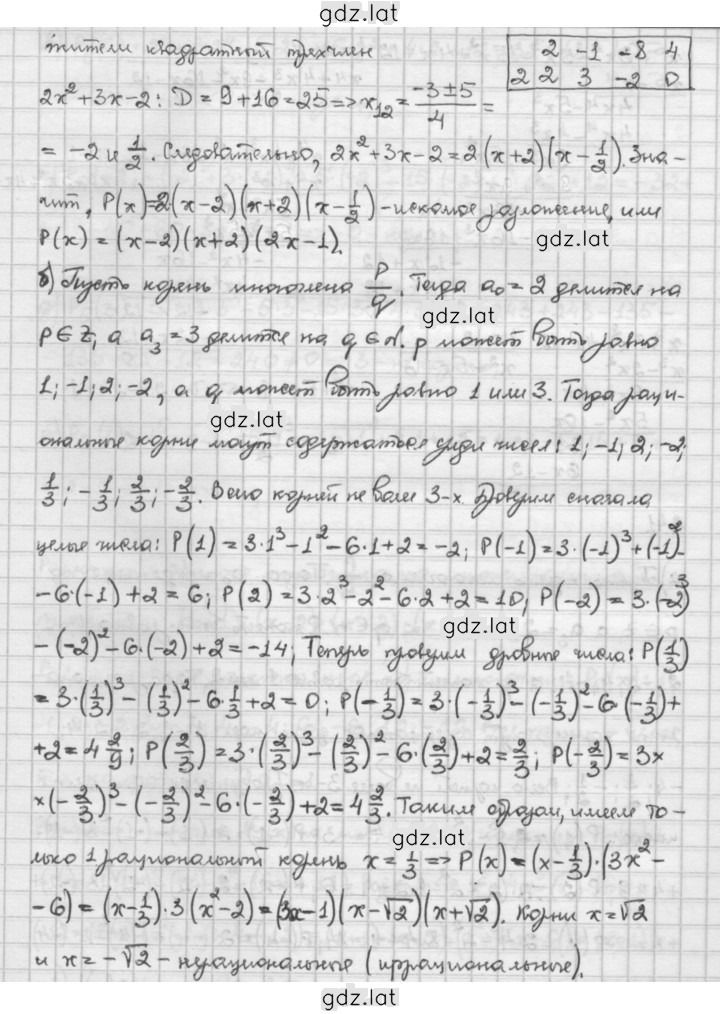 gdz.lat
жители квадратный трехчлен
2 -1 -8 4
2 2 3 -2 0
2x²+3x-2: D=9+16=25=>x₁₂=(-3±5)/4=
= -2 и 1/2. Следовательно, 2x²+3x-2=2(x+2)(x-1/2). Зна-
чит, P(x)=2(x-2)(x+2)(x-1/2)-искомое разложение, или
P(x)=(x-2)(x+2)(2x-1).
gdz.lat
б) Пусть корень многочлена p/q. Тогда a₀=2 делится на
gdz.lat
p∈Z, а a₃=3 делится на q∈N. p может быть равно
1; -1; 2; -2, а q может быть равно 1 или 3. Тогда раци-
gdz.lat
ональные корни могут содержаться среди чисел: 1; -1; 2; -2;
1/3; -1/3; 2/3; -2/3. Всего корней не более 3-х. Проверим сначала
целые числа: P(1)=3·1³-1²-6·1+2=-2; P(-1)=3·(-1)³+(-1)²-
gdz.lat
-6·(-1)+2=6; P(2)=3·2³-2²-6·2+2=10; P(-2)=3·(-2)³
-(-2)²-6·(-2)+2=-14; Теперь проверим дробные числа: P(1/3)
gdz.lat
=3·(1/3)³-(1/3)²-6·1/3+2=0; P(-1/3)=3·(-1/3)³-(-1/3)²-6·(-1/3)+
+2=4 2/9; P(2/3)=3·(2/3)³-(2/3)²-6·(2/3)+2=2/3; P(-2/3)=3×
gdz.lat
×(-2/3)³-(-2/3)²-6·(-2/3)+2=4 2/3. Таким образом, имеем то-
gdz.lat
лько 1 рациональный корень x=1/3=>P(x)=(x-1/3)·(3x²-
-6)=(x-1/3)·3(x²-2)=(3x-1)(x-√2)(x+√2). Корни x=√2
gdz.lat
и x=-√2-нерациональные (иррациональные).
gdz.lat